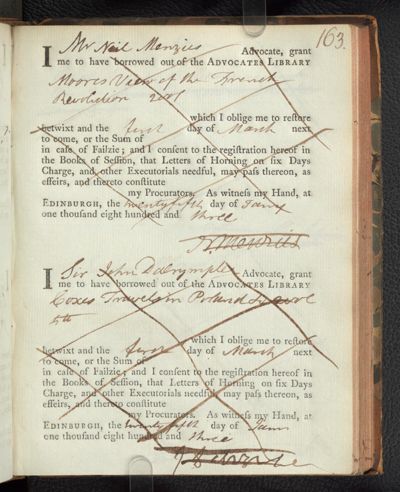 163.
I Mr Neil Menzies Advocate, grant
me to have borrowed out of the ADVOCATES LIBRARY
Moores View of the French
Revolution 2 vols
which I oblige me to restore
betwixt and the first day of March next
to come, or the Sum of
in case of Failzie; and I consent to the registration hereof in
the Books of Session, that Letters of Horning on six Days
Charge, and other Executorials needful, may pass thereon, as
effeirs, and thereto constitute
my Procurators. As witness my Hand, at
EDINBURGH, the twenty fifth day of
one thousand eight hundred and three
N. Menzies
I Sir John Dalrymple Advocate, grant
me to have borrowed out of the ADVOCATES LIBRARY
Coxes Travels in Poland
5th
which I oblige me to restore
betwixt and the first day of March next
to come, or the Sum of
in case of Failzie; and I consent to the registration hereof in
the Books of Session, that Letters of Horning on six Days
Charge, and other Executorials needful, may pass thereon, as
effeirs, and thereto constitute
my Procurators. As witness my Hand, at
EDINBURGH, the twenty fifth day of
one thousand eight hundred and three